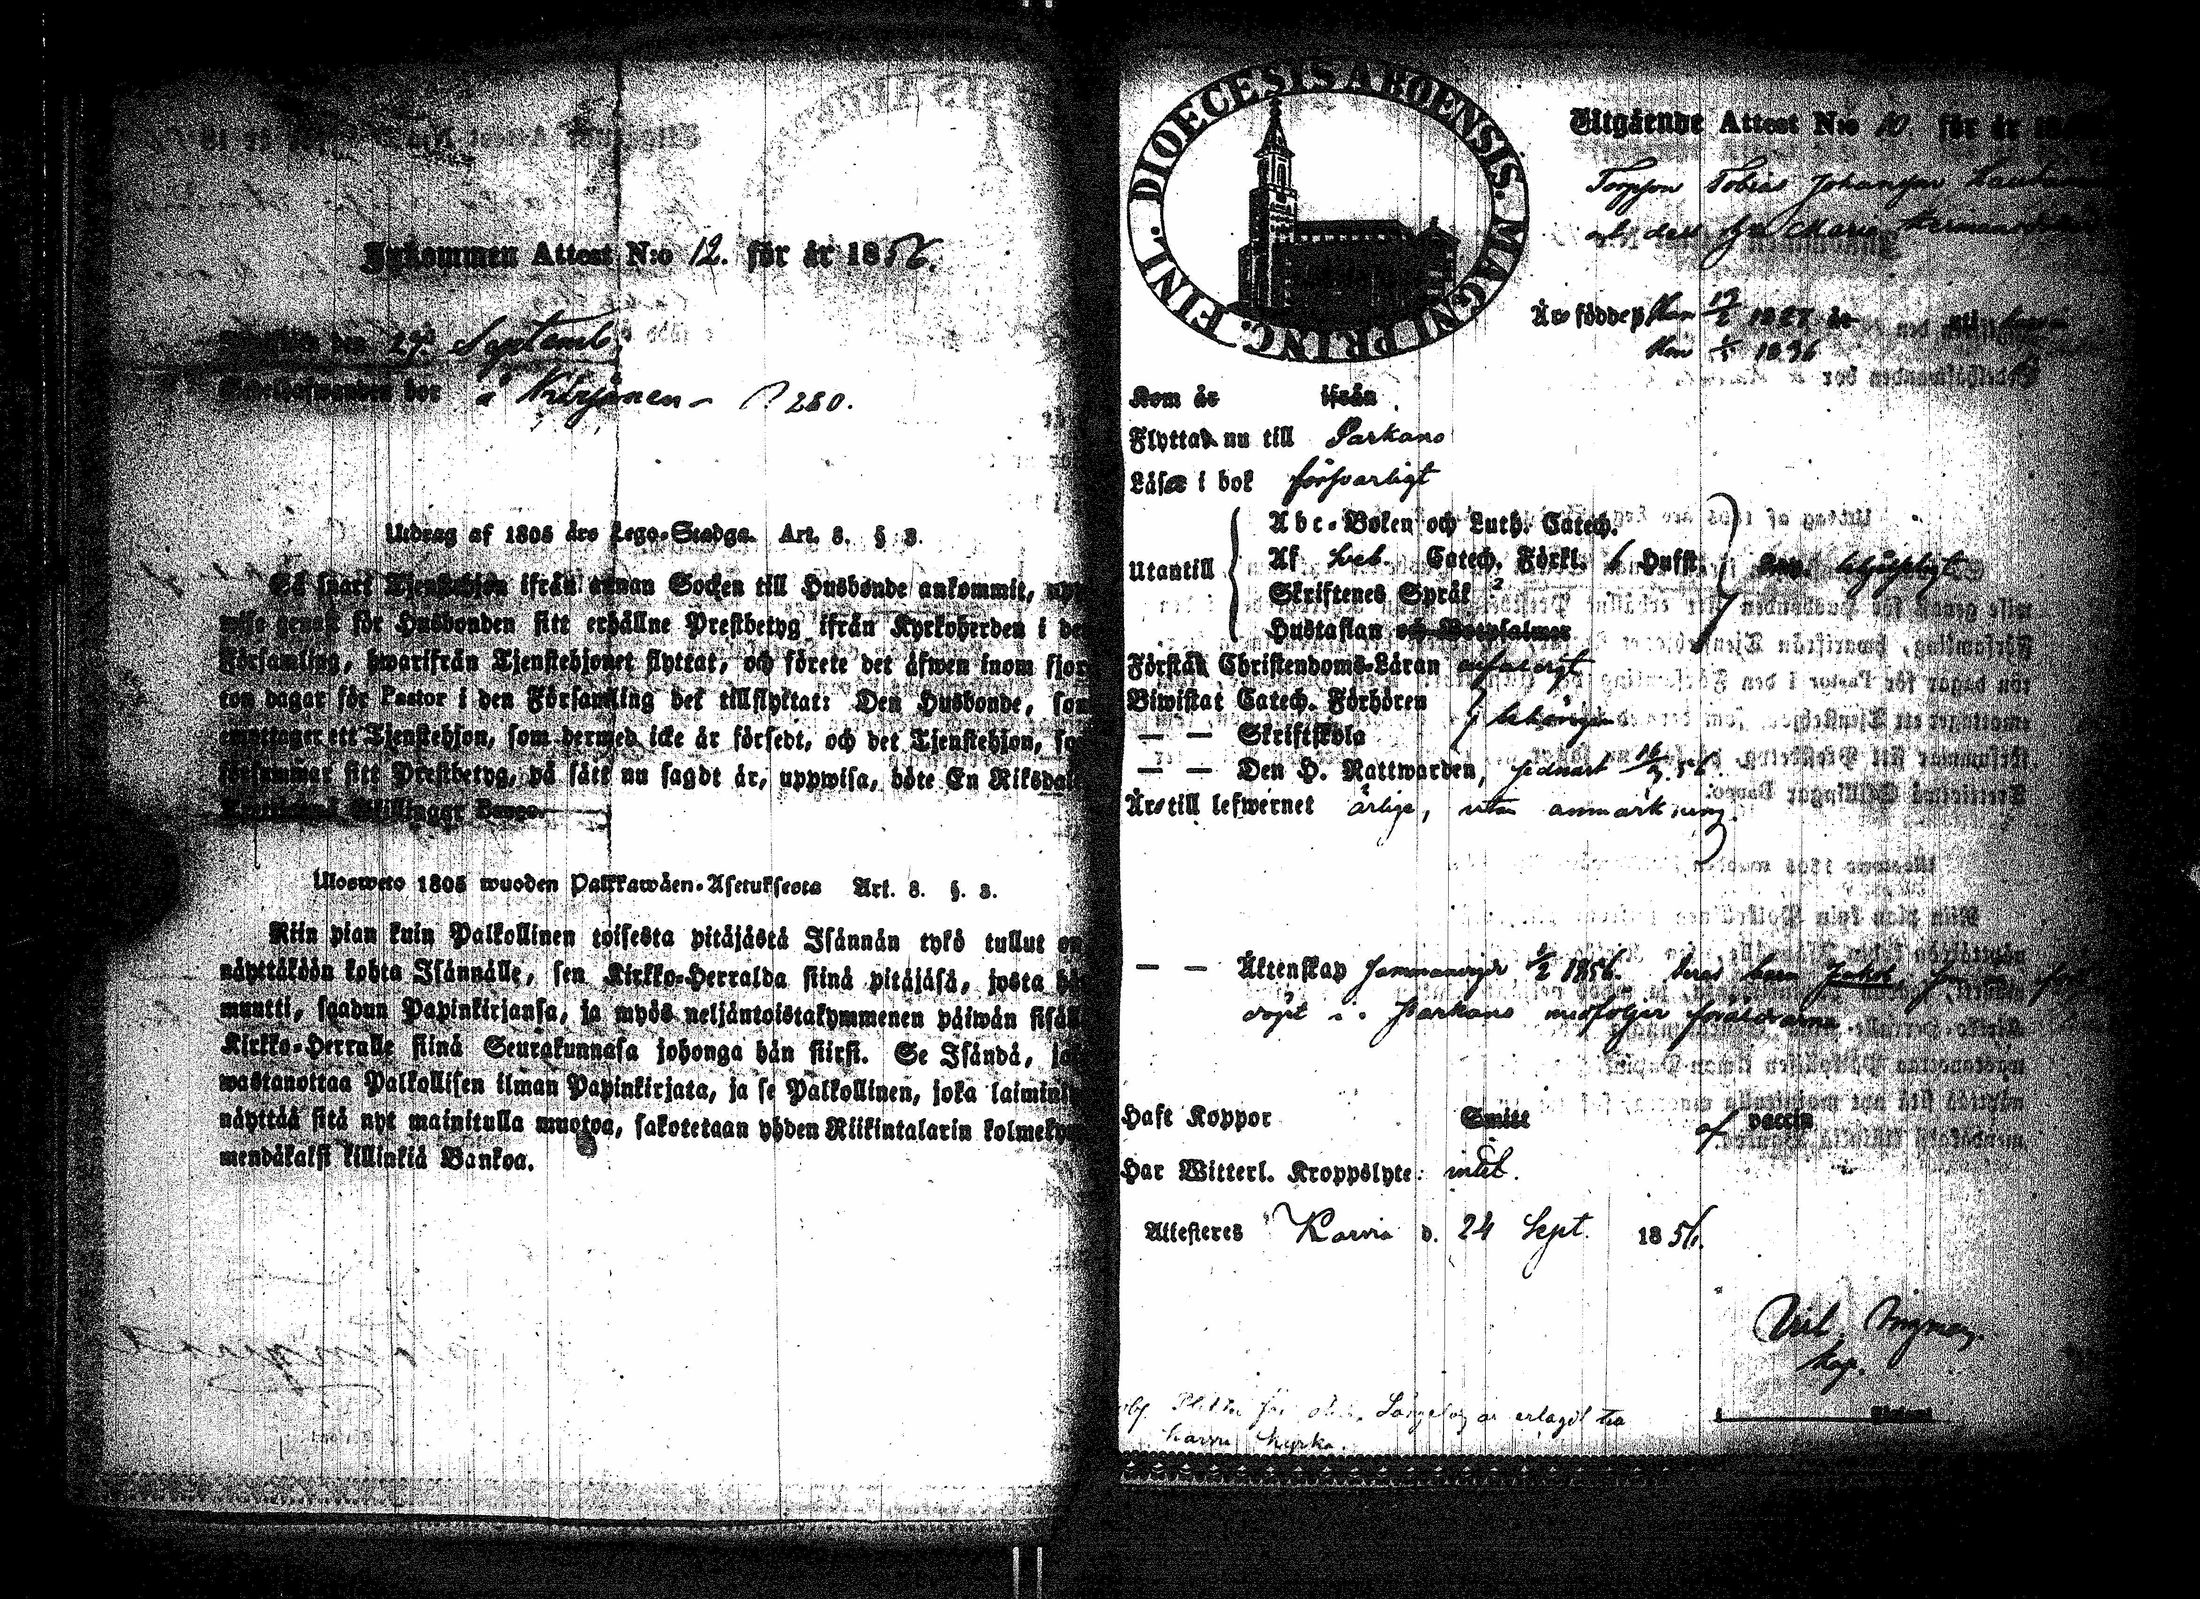 Inkommen Attest N:o 12. för år 185
den 29 Septemb.
bor å P 280.
Utdrag af 1805 års Lego-Stadga. Art. 8. § 3.
Så snart Tjenstehjon ifrån annan Socken till Husbonde ankommit, upp
wise genast för Husbonden sitt erhållne Prestbetyg ifrån Kyrkoherden i den
Församling, hwarifrån Tjenstehjonet flyttat, och förete det äfwen inom fjor
ton dagar för Pastor i den Församling det tillflyttat: Den Husbonde, som
emottager ett Tjenstehjon, som dermed icke är försedt, och det Tjenstehjon, som
försummar sitt Prestbetyg, på sätt nu sagdt är, uppwisa, böte En Riksdaler
Skillingar Banco.
Ulosweto 1805 wuoden Palkkawäen-Asetuksesta Art. 8. §. 3.
Niin pian kuin Palkollinen toisesta pitäjästä Isännän tykö tullut on
näyttäköön kohta Isännälle, sen Kirkko-Herralda siinä pitäjäsä, josta hän
muutti, saadun Papinkirjansa, ja myös neljäntoistakymmenen päiwän sisällä
Kirkko-Herralle siinä Seurakunnasa johonga hän siirsi. Se Isändä, joka
wastanottaa Palkollisen ilman Papinkirjata, ja se Palkollinen, joka laimin
näyttää sitä nyt mainitulla muotoa, sakotetaan yhden Riikintalarin kolmeky
mendäkaksi killinkiä Bankoa.
DIOECESIS ABOENSIS. MAGNI PRINC. FINL.
Utgående Attest N:o 10. för år 18
Torppon Tobias Johansson
och dess Maria Hermansdotter
Äro födde, 12/2 1827
1/1 1836
Kom år ifrån
Flyttar nu till Parkano
Läser i bok försvarligt
Utantill
Abc-Boken och Luth. Catech.
Af Sveb. Catech. Förkl. 6 Hufst.
Skriftenes Språk
Hustaflan och Botpsalmer
hjelpligt
Förstår Christendoms-Läran enfaldigt
Biwistat Catech. Förhören
— — Skriftskola
behörigen
— — Den H. Nattwarden, sednast 56.
Äro till lefwernet ärlige, utan anmärkning.
— — Äktenskap 1/2 1856. Deras barn Jakob,
döpt i Parkano medföljer föräldrarne
Haft Koppor Smitt af vaccin
Har Witterl. Kroppslyte: intet.
Attesteres Karvia d. 24 Sept. 1856.
Kap.
är erlagd till
Karvia kyrka.